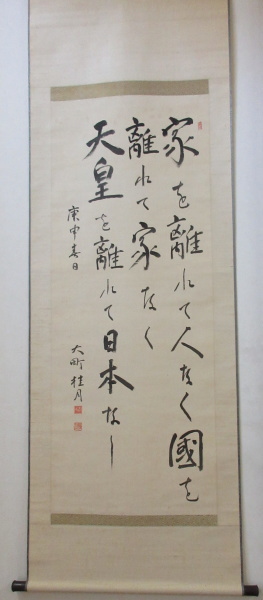 家を離れて人なく國を
離れて家なく
天皇を離れて日本なし
庚申春日
大町桂月